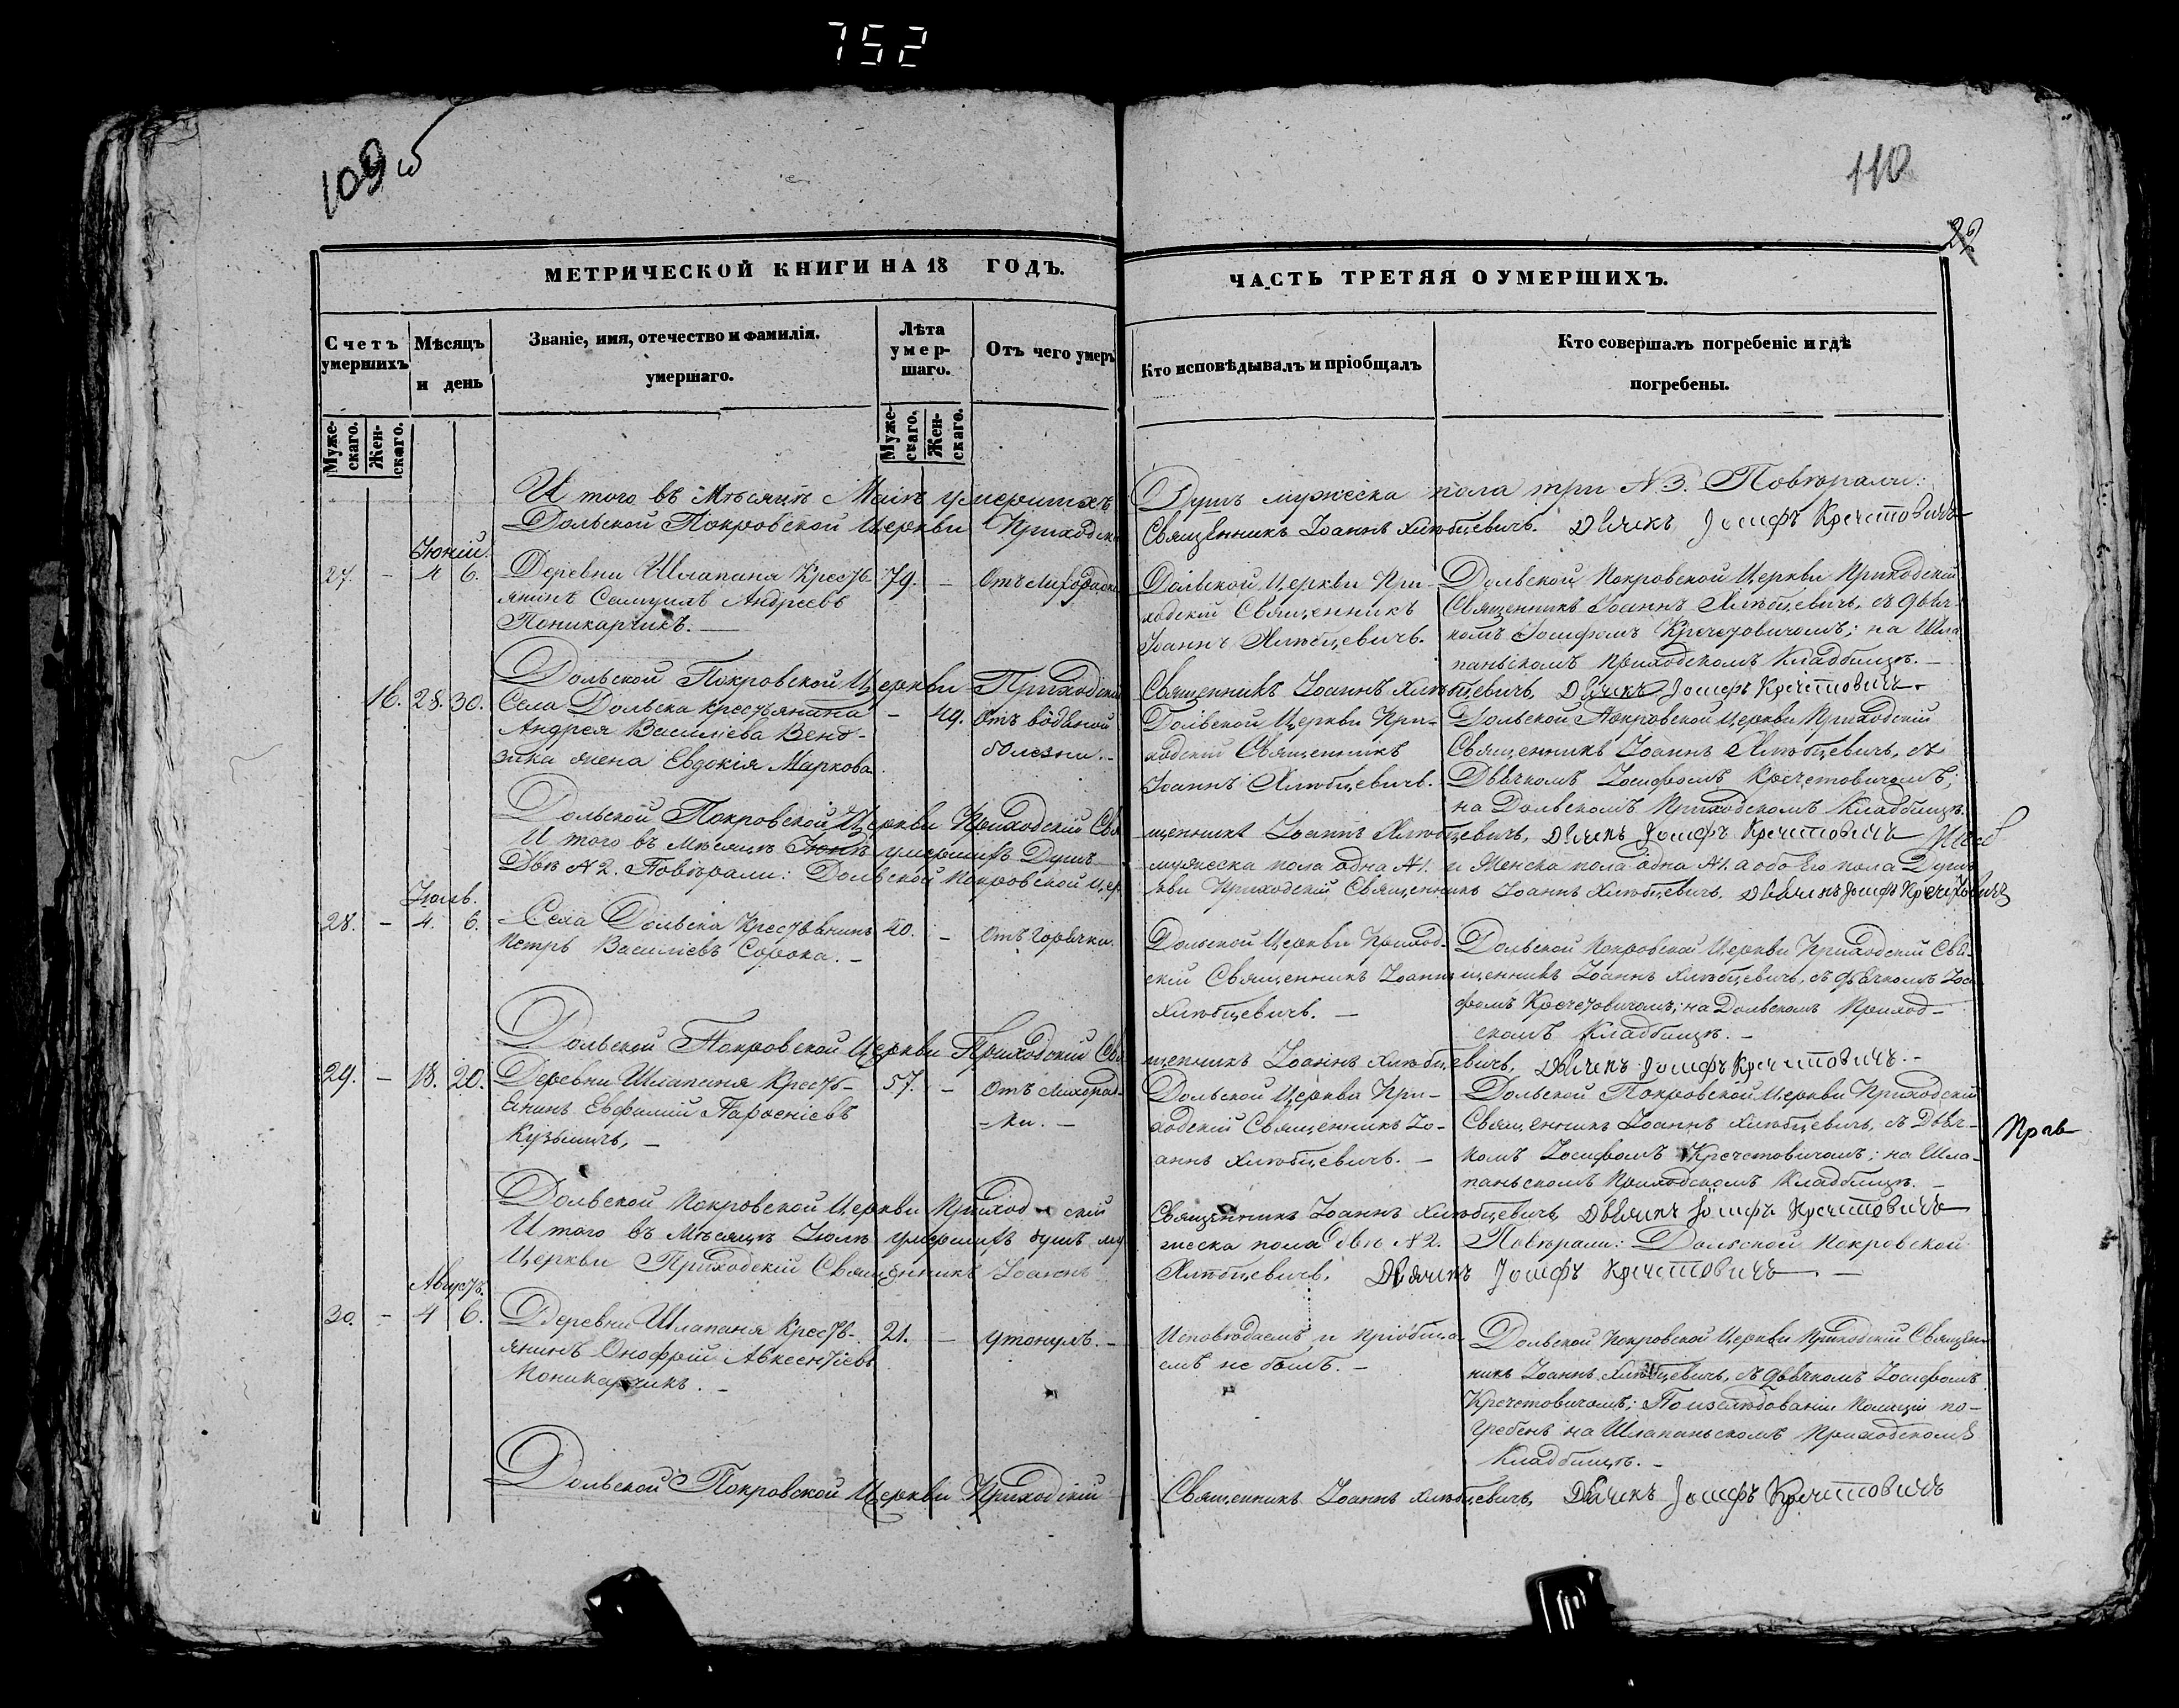 752
109 об
110
22
МЕТРИЧЕСКОЙ КНИГИ НА 18 ГОДЪ.
Счетъ умершихъ
Мѣсяцъ и день
Званіе, имя, отечество и фамилія.
умершаго.
Лѣта умер-
шаго.
Отъ чего умеръ
Муже-
скаго.
Жен-
скаго.
Муже-
скаго.
Жен-
скаго.
И того въ Мѣсяцѣ Маіѣ умершихъ
Дольской Покровской Церкви Приходскі
Іюній.
27. - 4 6. Деревни Шлапаня Кресть- 79. - Отъ лихорадки
янинъ Самуилъ Андреевъ
Поникарчикъ. —
Дольской Покровской Церкви Приходскій
16. 28. 30. Села Дольска крестьянина - 49. Отъ водяной
Андрея Василіева Венд- болезни. -
зика жена Евдокія Маркова
Дольской Покровской Церкви Приходскій Свя
И того въ мѣсяцѣ Іюнѣ умершихъ Душъ
Двѣ №2. Повѣрали: Дольской Покровской Цер
Іюль.
28. - 4. 6. Села Дольска Крестьянинъ 40. - Отъ горячки.
Петръ Василіевъ Сорока. -
Дольской Покровской Церкви Приходскій Свя
29. - 18. 20. Деревни Шлапаня Кресть- 57. - Отъ Лихорад-
янинъ Евфимій Парфеніевъ - ки. -
Кузьмичъ, -
Дольской Покровской Церкви Приходскій
И того въ Мѣсяцѣ Іюлѣ умершихъ душъ му
Церкви Приходскій Священникъ Іоаннъ
Августъ.
30. - 4 6. Деревни Шлапаня Кресть- 21. - утонулъ. -
янинъ Онофрій Авксентіевъ
Поникарчикъ. -
Дольской Покровской Церкви Приходскій
ЧАСТЬ ТРЕТЯЯ О УМЕРШИХЪ.
Кто исповѣдывалъ и пріобщалъ
Кто совершалъ погребеніе и гдѣ
погребены.
Душъ мужеска пола три №3. Повѣрали:
Священникъ Іоаннъ Хлѣбцевичъ. Дьячекъ Іосифъ Кречетовичъ
Дольской Церкви При- Дольской Покровской Церкви Приходскій
ходскій Священникъ Священникъ Іоаннъ Хлѣбцевичъ, съ дьяч-
Іоаннъ Хлѣбцевичъ. комъ Іосифомъ Кречетовичомъ; на Шла
паньскомъ Приходскомъ Кладбищѣ. —
Священникъ Іоаннъ Хлѣбцевичъ, Дьячекъ Іосифъ Кречетовичъ.
Дольской Церкви При- Дольской Покровской Церкви Приходскій
ходскій Священникъ Священникъ Іоаннъ Хлѣбцевичъ, съ
Іоаннъ Хлѣбцевичъ. Дьячкомъ Іосифомъ Кречетовичомъ;
на Дольскомъ Приходскомъ Кладбищѣ.
щенникъ Іоаннъ Хлѣбцевичъ, Дьячекъ Іосифъ Кречетовичъ
мужеска пола одна №1. и Женска пола одна №1. а обоего пола Душъ
кви Приходскій Священникъ Іоаннъ Хлѣбцевичъ, Дьячекъ Іосифъ Кречетовичъ
Дольской Церкви Приход- Дольской Покровской Церкви Приходскій Свя-
скій Священникъ Іоаннъ щенникъ Іоаннъ Хлѣбцевичъ, съ дьячкомъ Іоси
Хлѣбцевичъ. — фомъ Кречетовичомъ; на Дольскомъ Приход-
скомъ Кладбищѣ. -
щенникъ Іоаннъ Хлѣбцевичъ, Дьячекъ Іосифъ Кречетовичъ. -
Дольской Церкви При- Дольской Покровской Церкви Приходскій
ходскій Священникъ Іо- Священникъ Іоаннъ Хлѣбцевичъ, съ Дьяч-
аннъ Хлѣбцевичъ. — комъ Іосифомъ Кречетовичомъ; на Шла-
паньскомъ Приходскомъ Кладбищѣ. -
Священникъ Іоаннъ Хлѣбцевичъ, Дьячекъ Іосифъ Кречетовичъ
жеска пола двѣ №2. Повѣрали: Дольской Покровской
Хлѣбцевичъ, Дьячекъ Іосифъ Кречетовичъ —
Исповѣдаемъ и пріобща- Дольской Покровской Церкви Приходскій Священ-
емъ не былъ. - никъ Іоаннъ Хлѣбцевичъ, съ дьячкомъ Іосифомъ
Кречетовичомъ; По изслѣдованіи Полиціи по-
гребенъ на Шлапаньскомъ Приходскомъ
Кладбищѣ. -
Священникъ Іоаннъ Хлѣбцевичъ, Дьячекъ Іосифъ Кречетовичъ